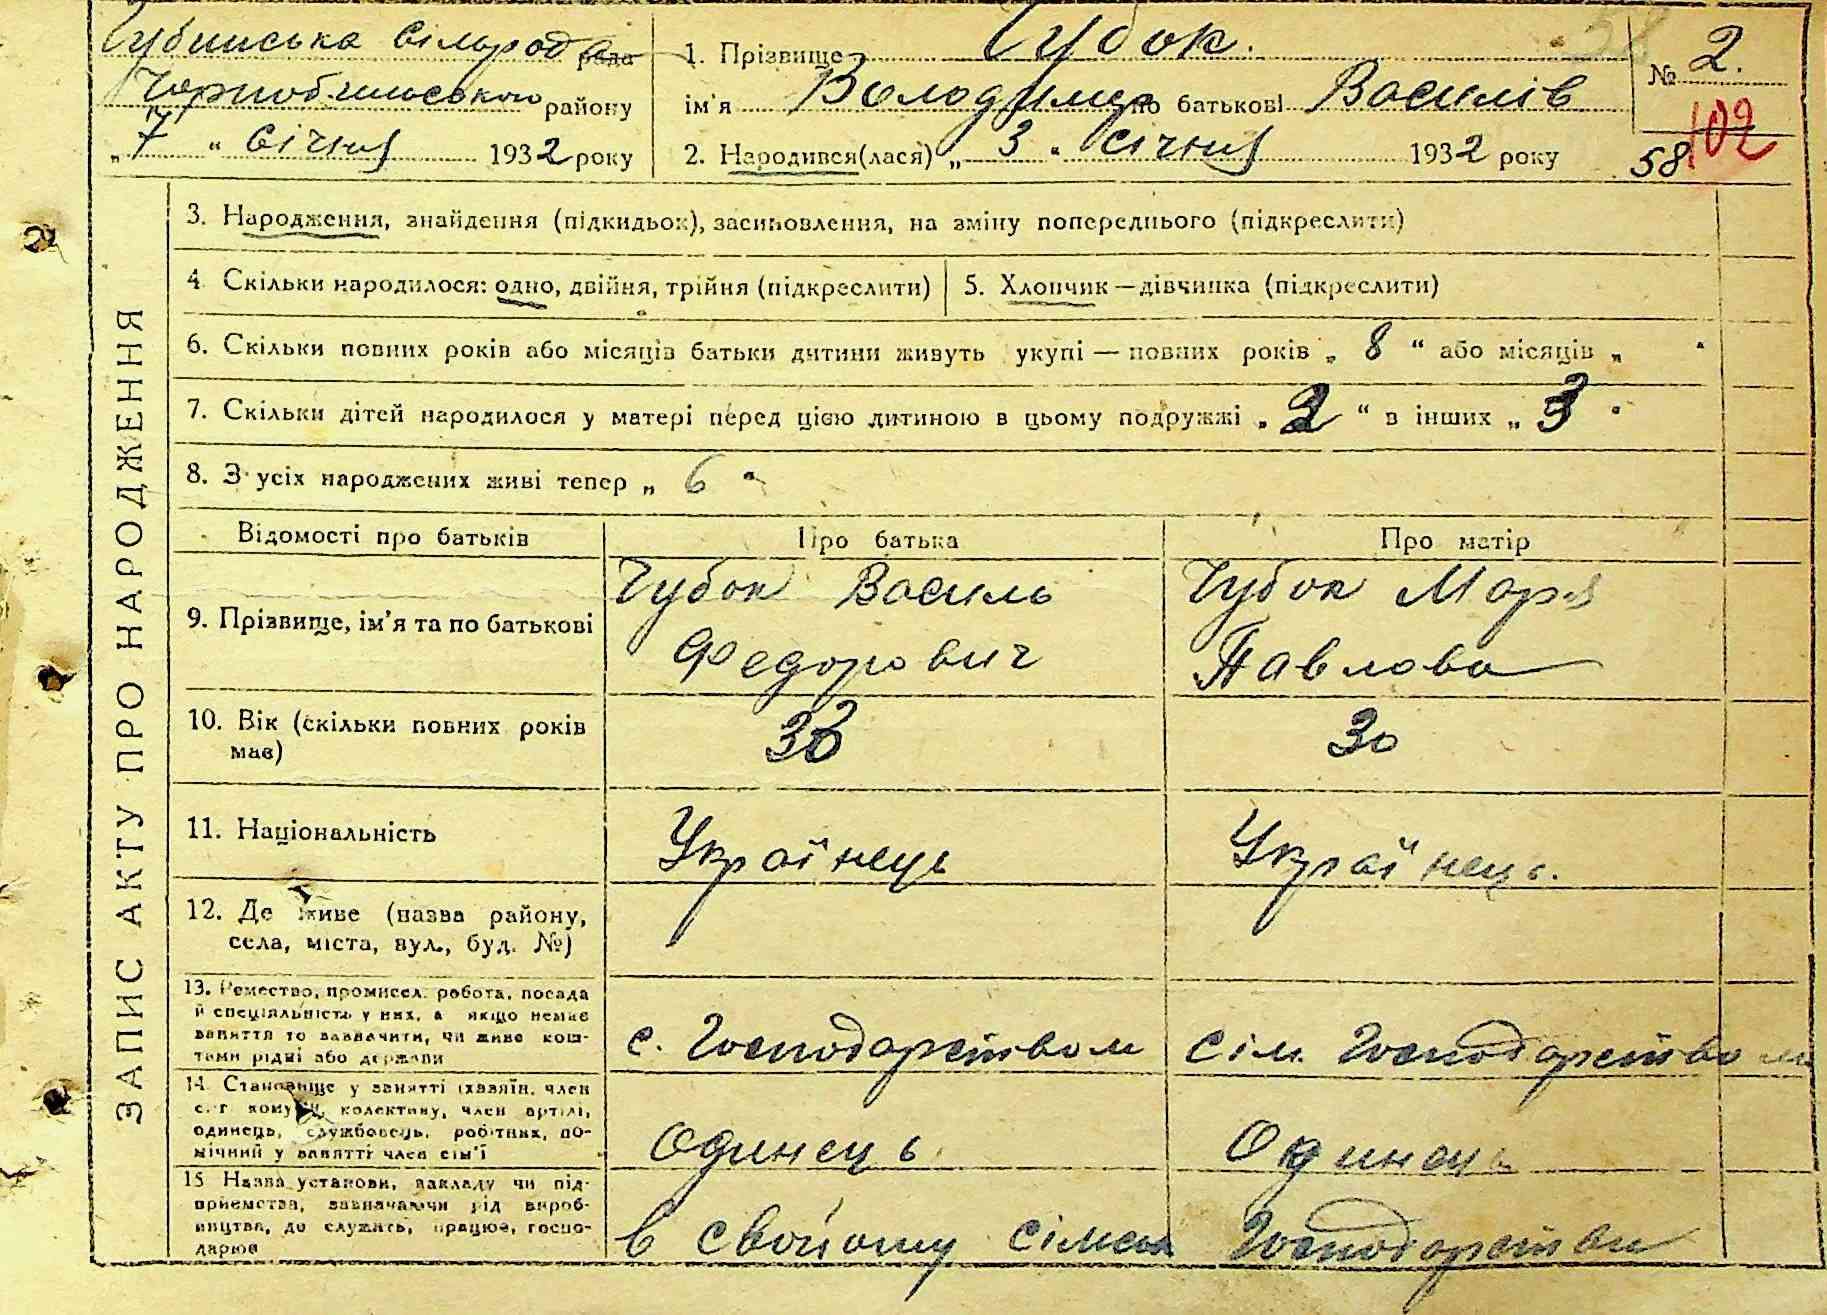 сільрада рада
району
„7“ Січня 1932 року
1. Прізвище Чубок.
ім'я Володимир по батькові Василів
2. Народився(лася) „3“ Січня 1932 року
№ 2.
102
58
ЗАПИС АКТУ ПРО НАРОДЖЕННЯ
3. Народження, знайдення (підкидьок), засиновлення, на зміну попереднього (підкреслити)
4. Скільки народилося: одно, двійня, трійня (підкреслити)
5. Хлопчик — дівчинка (підкреслити)
6. Скільки повних років або місяців батьки дитини живуть укупі — повних років „8“ або місяців „ “
7. Скільки дітей народилося у матері перед цією дитиною в цьому подружжі „2“ в інших „3“
8. З усіх народжених живі тепер „6“
Відомості про батьків
Про батька
Про матір
9. Прізвище, ім'я та по батькові
Чубок Василь
Федорович
Чубок Мар'я
Павлова
10. Вік (скільки повних років
має)
30
11. Національність
Українець
Українець.
12. Де живе (назва району,
села, міста, вул., буд. №)
13. Ремество, промисел, робота, посада
й спеціяльність у них, а якщо немає
заняття то зазначити, чи живе кош-
тами рідні або держави
с. Господарством
сіл. Господарством
14. Становище у занятті (хазяїн, член
с.-г комуни, колективу, член артілі,
одинець, службовець, робітник, по-
мічний у занятті член сім'ї
Одинець
Одинець
15. Назва установи, закладу чи під-
приємства, зазначаючи рід вироб-
ництва, де служить, працює, госпо-
дарює
в свойому Господарстви